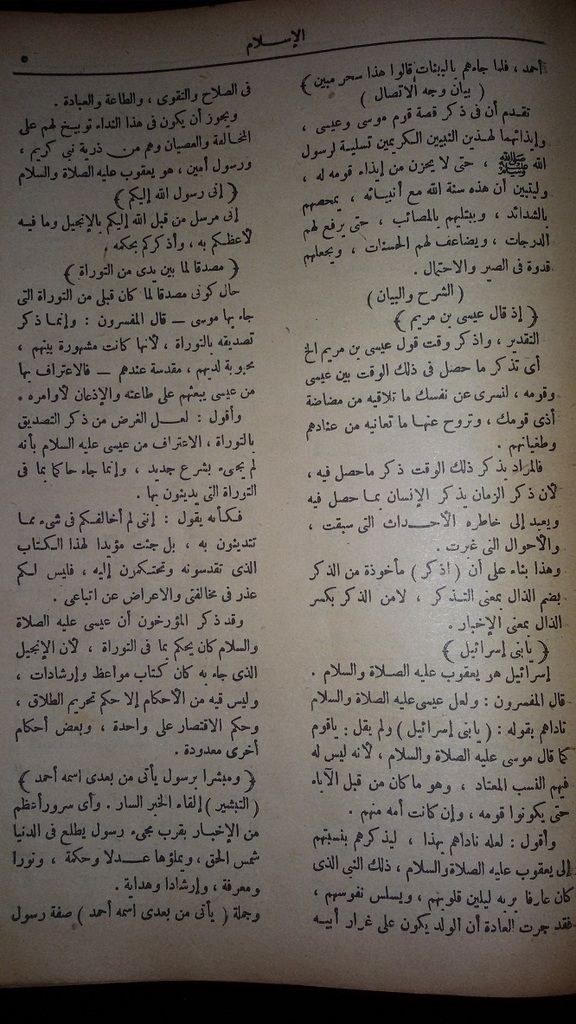 الإسلام
٥
أحمد ، فلما جاءهم بالبينات قالوا هذا سحر مبين ﴾
( بيان وجه الاتصال )
تقدم أن فى ذكر قصة قوم موسى وعيسى ،
وإيذائهما لهذين النبيين الكريمين تسلية لرسول
الله ﷺ ، حتى لا يحزن من إيذاء قومه له ،
وليتبين أن هذه سنة الله مع أنبيائه ، يمحصهم
بالشدائد ، ويبتليهم بالمصائب ، حتى يرفع لهم
الدرجات ، ويضاعف لهم الحسنات ، ويجعلهم
قدوة فى الصبر والاحتمال .
( الشرح والبيان )
﴿ إذ قال عيسى بن مريم ﴾
التقدير ، واذكر وقت قول عيسى بن مريم الخ
أى تذكر ما حصل فى ذلك الوقت بين عيسى
وقومه ، لنسرى عن نفسك ما تلاقيه من مضاضة
أذى قومك ، وتروح عنها ما تعانيه من عنادهم
وطغيانهم .
فالمراد بذكر ذلك الوقت ذكر ماحصل فيه ،
لأن ذكر الزمان يذكر الإنسان بما حصل فيه
ويعيد إلى خاطره الأحداث التى سبقت ،
والأحوال التى غبرت .
وهذا بناء على أن ( اذكر ) مأخوذة من الذكر
بضم الذال بمعنى التذكر ، لامن الذكر بكسر
الذال بمعنى الإخبار .
﴿ يابنى إسرائيل ﴾
إسرائيل هو يعقوب عليه الصلاة والسلام .
قال المفسرون : ولعل عيسى عليه الصلاة والسلام
ناداهم بقوله : ( يابنى إسرائيل ) ولم يقل : ياقوم
كما قال موسى عليه الصلاة والسلام ، لأنه ليس له
فيهم النسب المعتاد ، وهو ماكان من قبل الآباء
حتى يكونوا قومه ، وإن كانت أمه منهم .
وأقول : لعله ناداهم بهذا ، ليذكرهم بنسبتهم
إلى يعقوب عليه الصلاة والسلام ، ذلك النبى الذى
كان عارفا بربه ليلين قلوبهم ، ويسلس نفوسهم ،
فقد جرت العادة أن الولد يكون على غرار أبيه
فى الصلاح والتقوى ، والطاعة والعبادة .
ويجوز أن يكون فى هذا النداء توبيخ لهم على
المخالفة والعصيان وهم من ذرية نبى كريم ،
ورسول أمين ، هو يعقوب عليه الصلاة والسلام
﴿ إنى رسول الله إليكم ﴾
إنى مرسل من قبل الله إليكم بالإنجيل وما فيه
لأعظكم به ، وأذكركم بحكمه .
﴿ مصدقا لما بين يدى من التوراة ﴾
حال كونى مصدقا لما كان قبلى من التوراة التى
جاء بها موسى — قال المفسرون : وإنما ذكر
تصديقه بالتوراة ، لأنها كانت مشهورة بينهم ،
محبوبة لديهم ، مقدسة عندهم — فالاعتراف بها
من عيسى يبعثهم على طاعته والإذعان لأوامره .
وأقول : لعل الغرض من ذكر التصديق
بالتوراة ، الاعتراف من عيسى عليه السلام بأنه
لم يجىء بشرع جديد ، وإنما جاء حاكما بما فى
التوراة التى يدينون بها .
فكأنه يقول : إننى لم أخالفكم فى شىء مما
تتدينون به ، بل جئت مؤيدا لهذا الكتاب
الذى تقدسونه وتحتكمون إليه ، فليس لكم
عذر فى مخالفتى والاعراض عن اتباعى .
وقد ذكر المؤرخون أن عيسى عليه الصلاة
والسلام كان يحكم بما فى التوراة ، لأن الإنجيل
الذى جاء به كان كتاب مواعظ وإرشادات ،
وليس فيه من الأحكام إلا حكم تحريم الطلاق ،
وحكم الاقتصار على واحدة ، وبعض أحكام
أخرى معدودة .
﴿ ومبشرا برسول يأتى من بعدى اسمه أحمد ﴾
( التبشير ) إلقاء الخبر السار . وأى سرور أعظم
من الإخبار بقرب مجىء رسول يطلع فى الدنيا
شمس الحق ، ويملؤها عدلا وحكمة ، ونورا
ومعرفة ، وإرشادا وهداية .
وجملة ( يأتى من بعدى اسمه أحمد ) صفة رسول